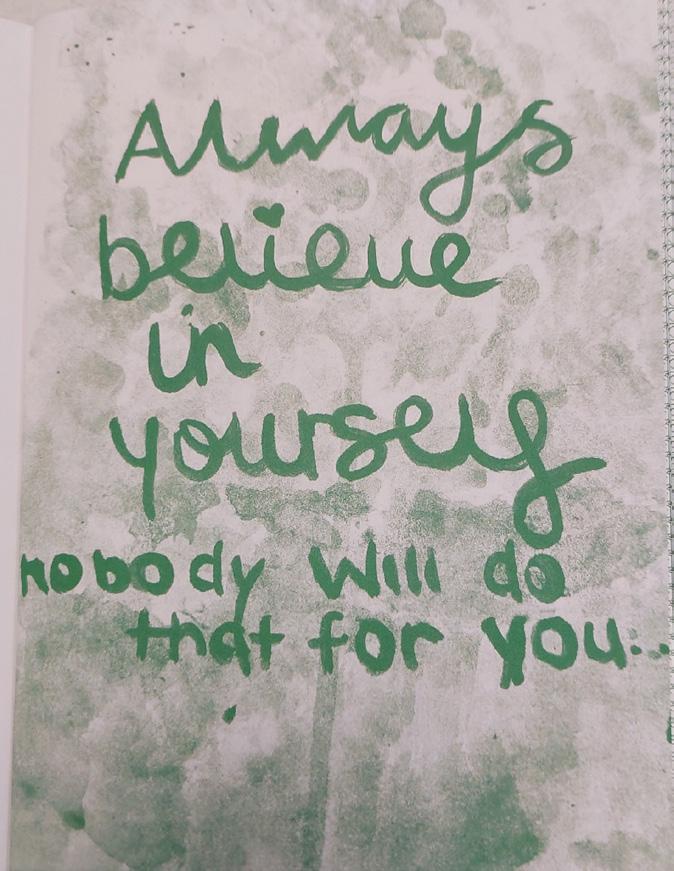 Always
believe
in
yourself
nobody will do
that for you...